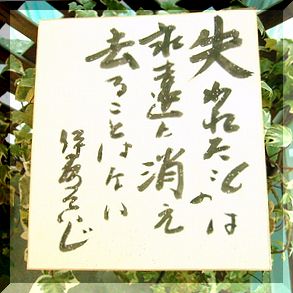 失われたものは
永遠に消え
去ることはない